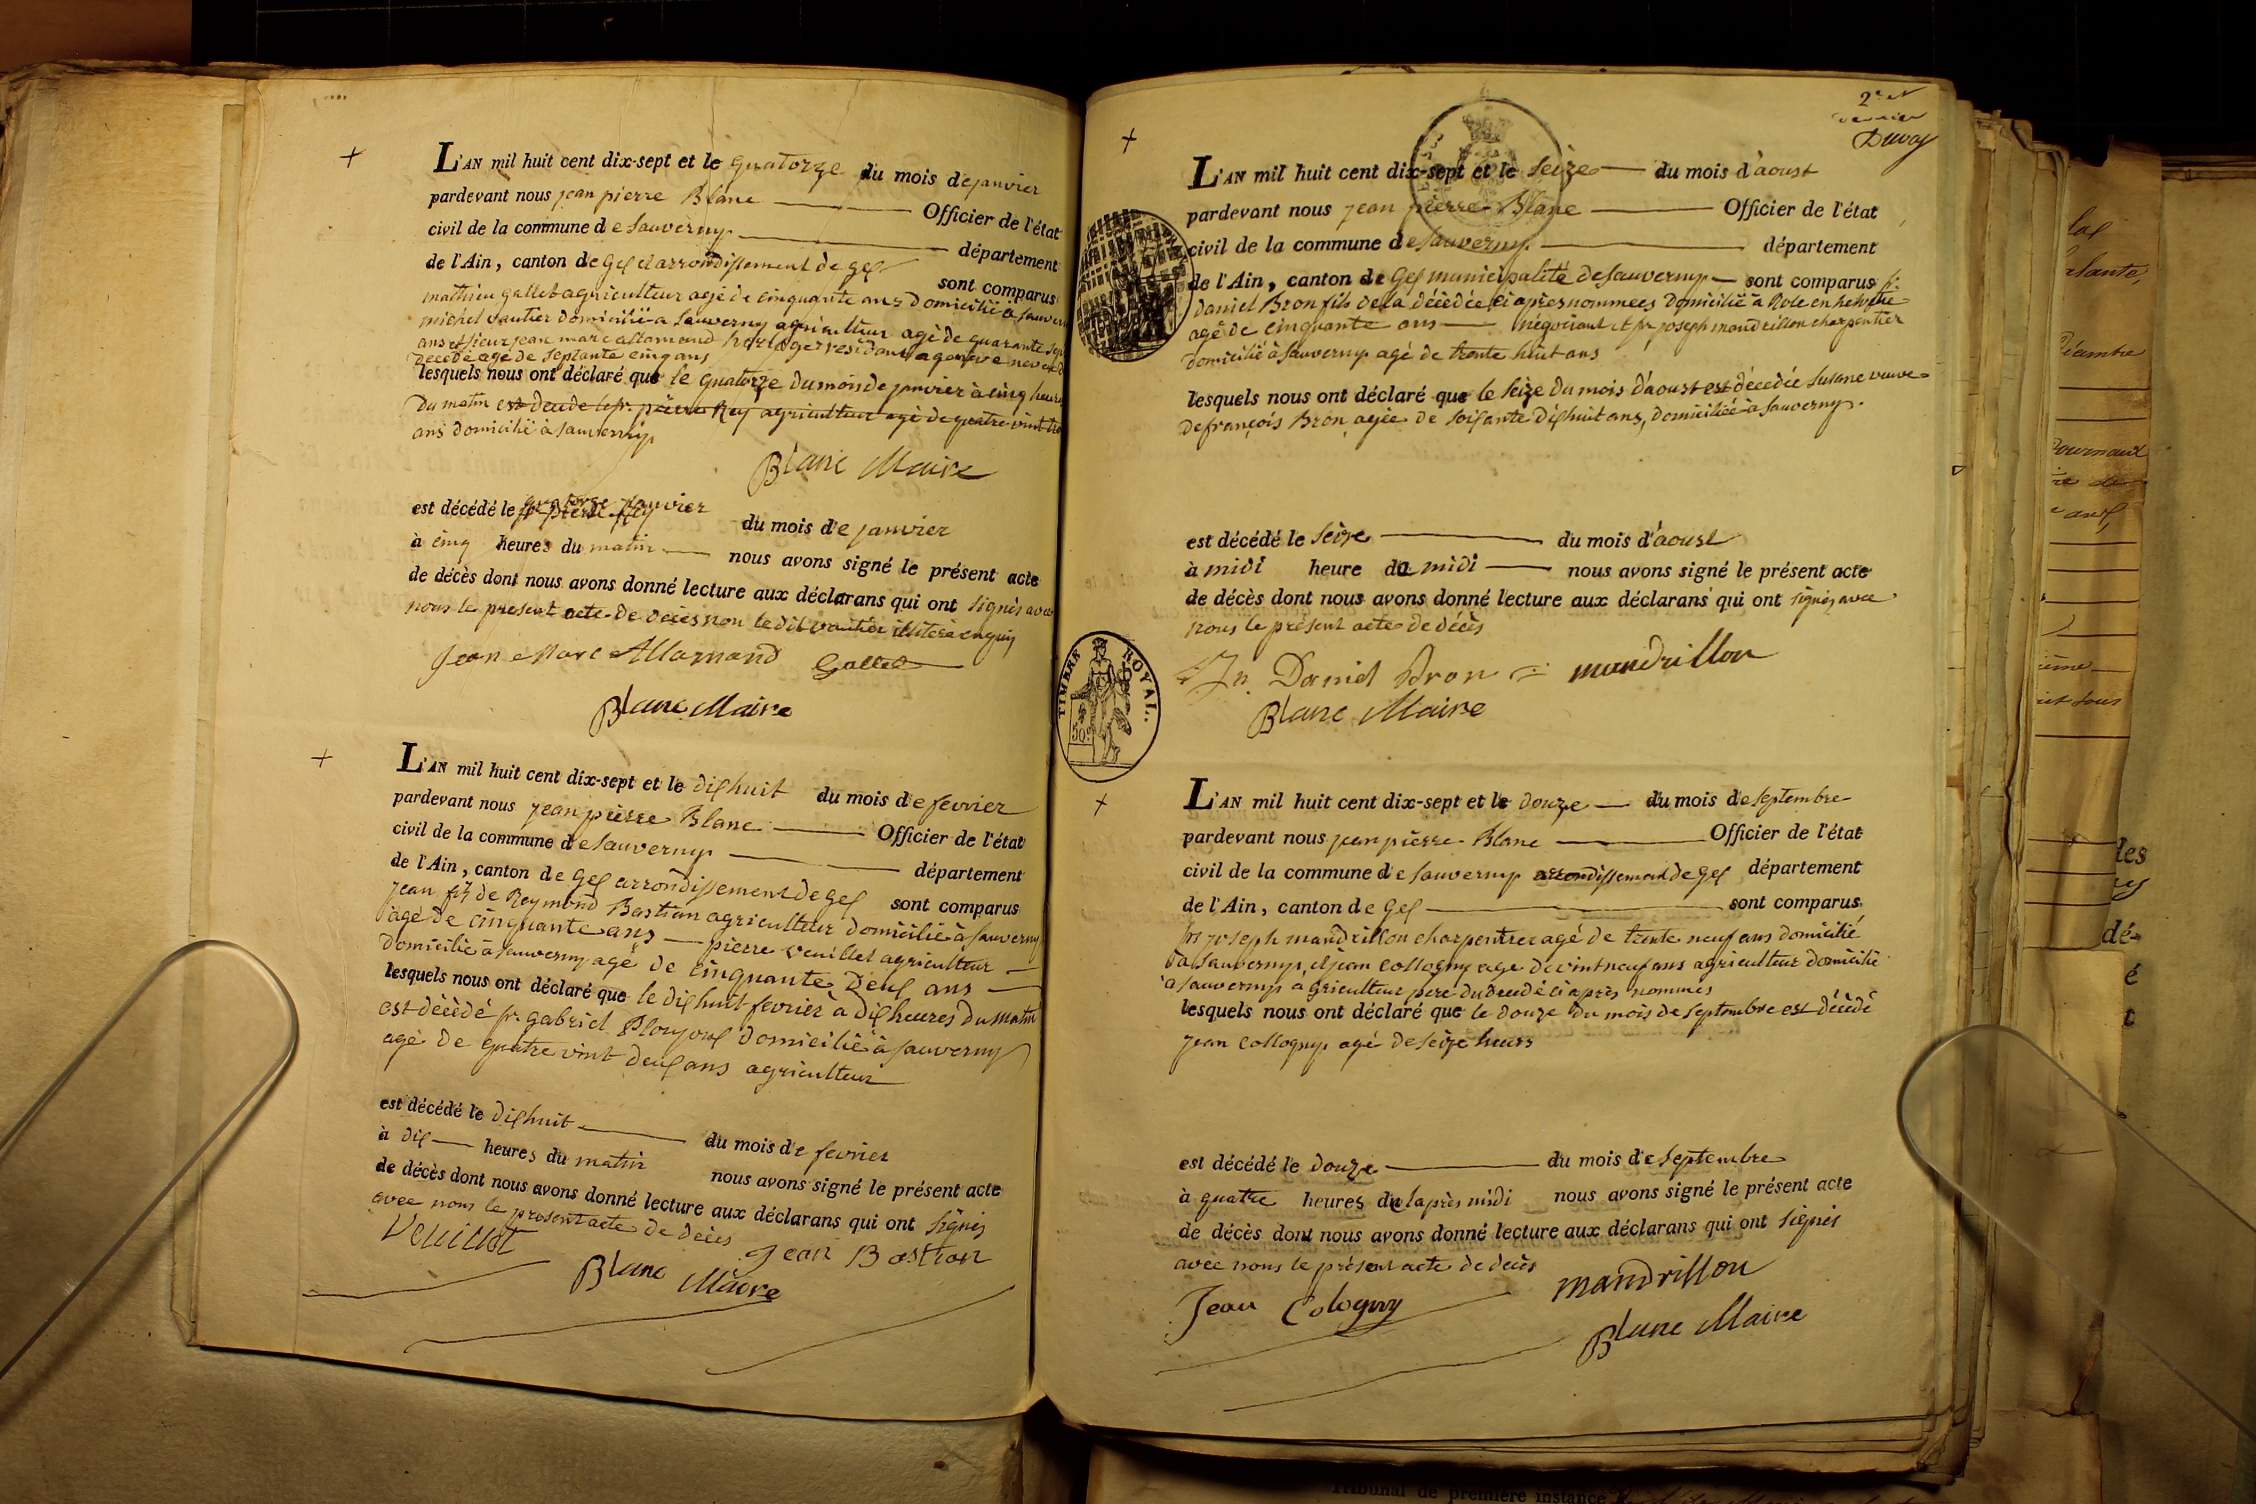 L'AN mil huit cent dix-sept et le quatorze du mois de janvier
pardevant nous jean pierre Blanc Officier de l'état
civil de la commune de Sauverny département
de l'Ain, canton de Gex et arrondissement de gex sont comparus
mathieu gallet agriculteur agé de cinquante ans domicilié à Sauverny
michel vautier domicilié a Sauverny agriculteur agé de quarante sept
ans et sieur jean marc allamand horloger résidant a geneve neveu
décédé agé de septante cinq ans
lesquels nous ont déclaré que le quatorze du mois de janvier à cinq heures
du matin est decedé le sr. pierre Rey agriculteur agé de quatre vint
ans domicilié à Sauverny
Blanc Maire
est décédé le quatorze janvier du mois de janvier
à cinq heures du matin nous avons signé le présent acte
de décès dont nous avons donné lecture aux déclarans qui ont signés avec
nous le present acte de décès non le dit vautier illiteré enquis
Jean Marc Allamand Gallet
Blanc Maire
L'AN mil huit cent dix-sept et le dixhuit du mois de fevrier
pardevant nous jean pierre Blanc Officier de l'état
civil de la commune de Sauverny département
de l'Ain, canton de Gex arrondissement de gex sont comparus
jean fils de Reymond Bastian agriculteur domicilié à Sauverny
agé de cinquante ans pierre veuillet agriculteur
domicilié à Sauverny agé de cinquante deux ans
lesquels nous ont déclaré que le dixhuit fevrier à dix heures du matin
est décédé sr. gabriel Ploujoux domicilié à Sauverny
agé de quatre vint deux ans agriculteur
est décédé le dixhuit du mois de fevrier
à dix heures du matin nous avons signé le présent acte
de décès dont nous avons donné lecture aux déclarans qui ont signés
avec nous le présent acte de décès
Veuillet Jean Bastian
Blanc Maire
2e et
dernier
Duvoy
L'AN mil huit cent dix-sept et le Seize du mois d'aoust
pardevant nous jean pierre Blanc Officier de l'état
civil de la commune de Sauverny département
de l'Ain, canton de Gex municipalité de Sauverny sont comparus sr.
daniel Bron fils de la décédée ci après nommées domicilié à Role en helvetie
agé de cinquante ans négociant et sr joseph mandrillon charpentier
domicilié à Sauverny agé de trente huit ans
lesquels nous ont déclaré que le Seize du mois d'aoust est décédée Susane veuve
de françois Bron agée de soixante dixhuit ans, domiciliée à Sauverny.
est décédé le seize du mois d'aoust
à midi heure du midi nous avons signé le présent acte
de décès dont nous avons donné lecture aux déclarans qui ont signés avec
nous le présent acte de décès
Jn Daniel Bron mandrillon
Blanc Maire
TIMBRE ROYAL.
50c
L'AN mil huit cent dix-sept et le douze du mois de septembre
pardevant nous jean pierre Blanc Officier de l'état
civil de la commune de Sauverny arrondissement de gex département
de l'Ain, canton de Gex sont comparus
sr joseph mandrillon charpentier agé de trente neuf ans domicilié
à Sauverny, et jean Collogny age de vint neuf ans agriculteur domicilié
à Sauverny agriculteur pere du decedé ci après nommés
lesquels nous ont déclaré que le douze du mois de septembre est décédé
jean Collogny agé de seize heurs
est décédé le douze du mois de septembre
à quatre heures de laprès midi nous avons signé le présent acte
de décès dont nous avons donné lecture aux déclarans qui ont signés
avec nous le présent acte de decès
Jean Cologny mandrillon
Blanc Maire
Tribunal de première instance